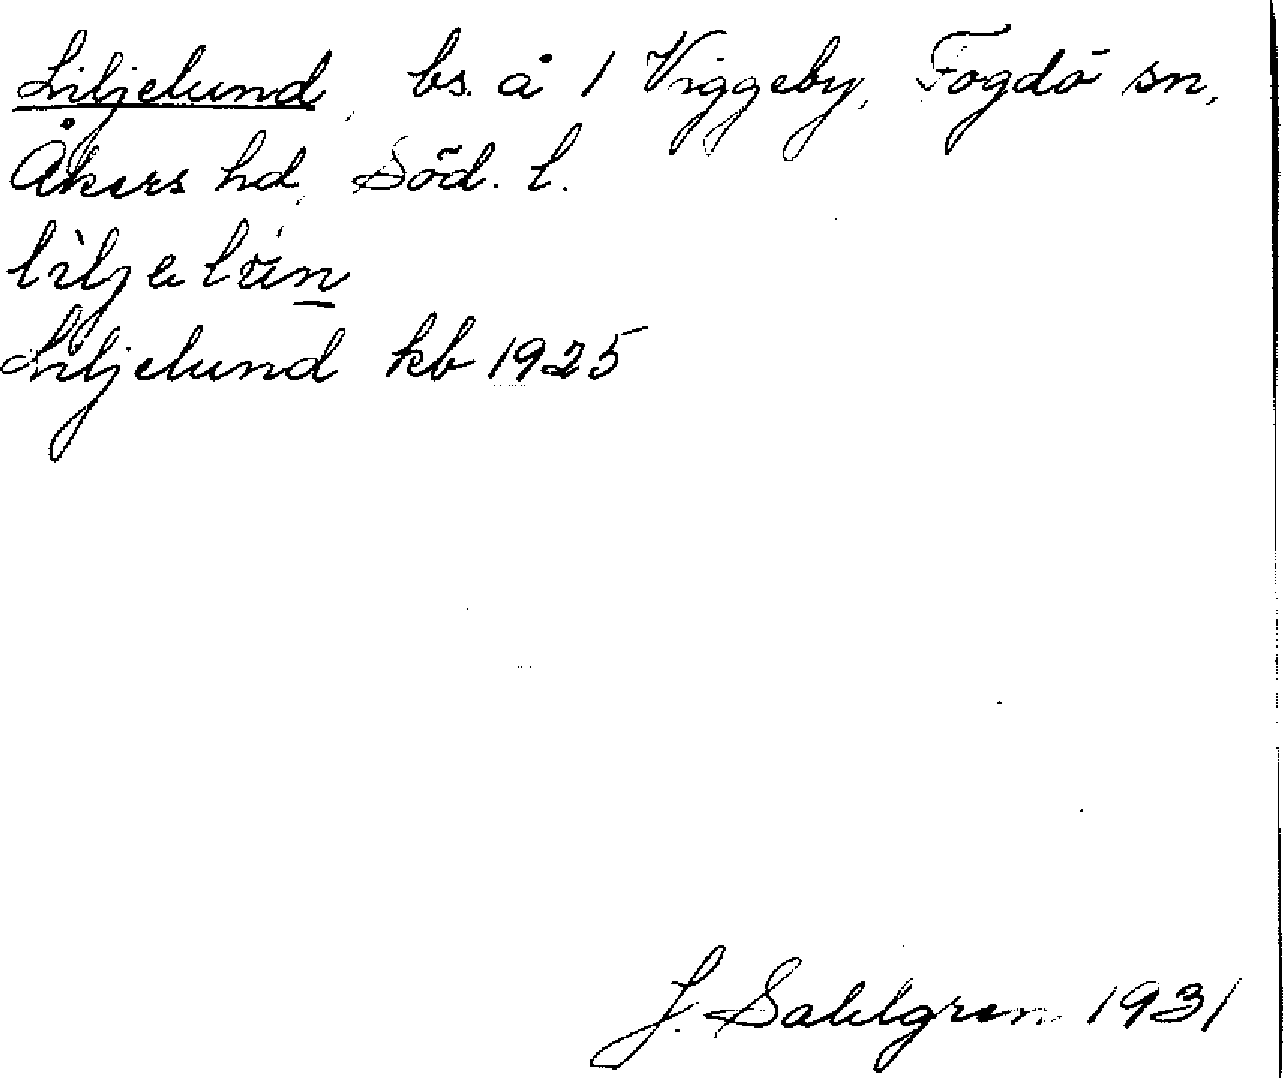 Liljelund, bs. å 1 Viggeby, Fogdö sn,
Åkers hd, Söd. l.
Liljelund kb 1925
J. Sahlgren 1931